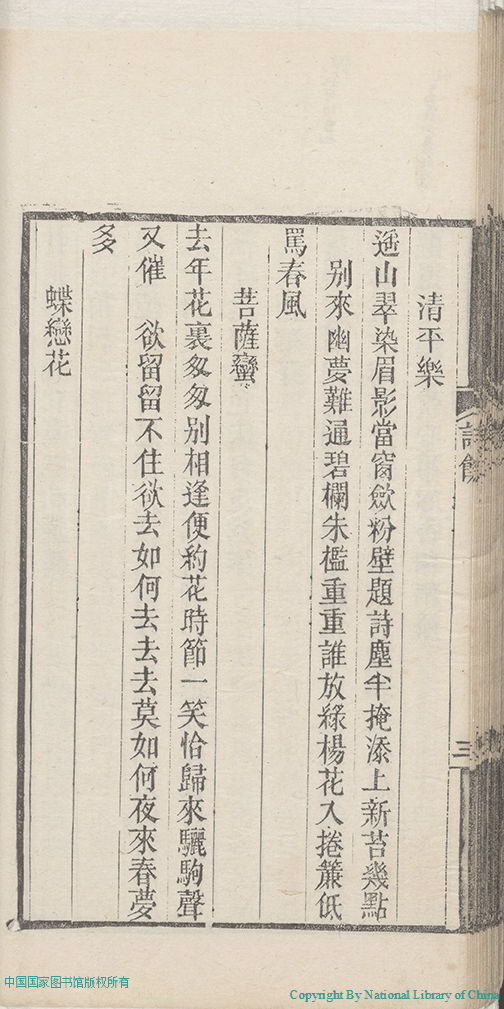 清平樂
遙山翠染眉影當窗歛粉壁題詩塵半掩添上新苔幾點
別來幽夢難通碧欄朱檻重重誰放綠楊花入捲簾低
罵春風
菩薩蠻
去年花裏匆匆別相逢便約花時節一笑恰歸來驪駒聲
又催　欲留留不住欲去如何去去去莫如何夜來春夢
多
蝶戀花
詩餘
三
中国国家图书馆版权所有
Copyright By National Library of China